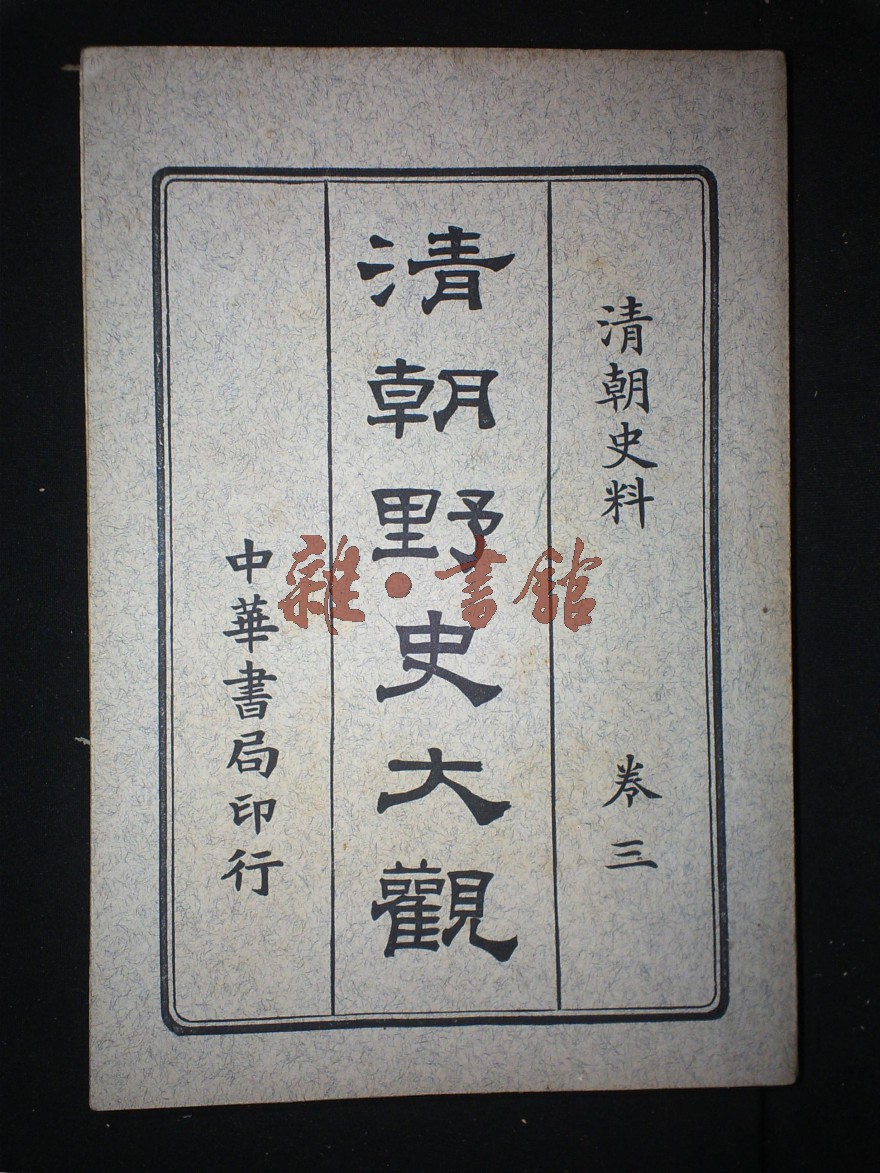 清朝史料 卷三
清朝野史大觀
中華書局印行
雜·書館